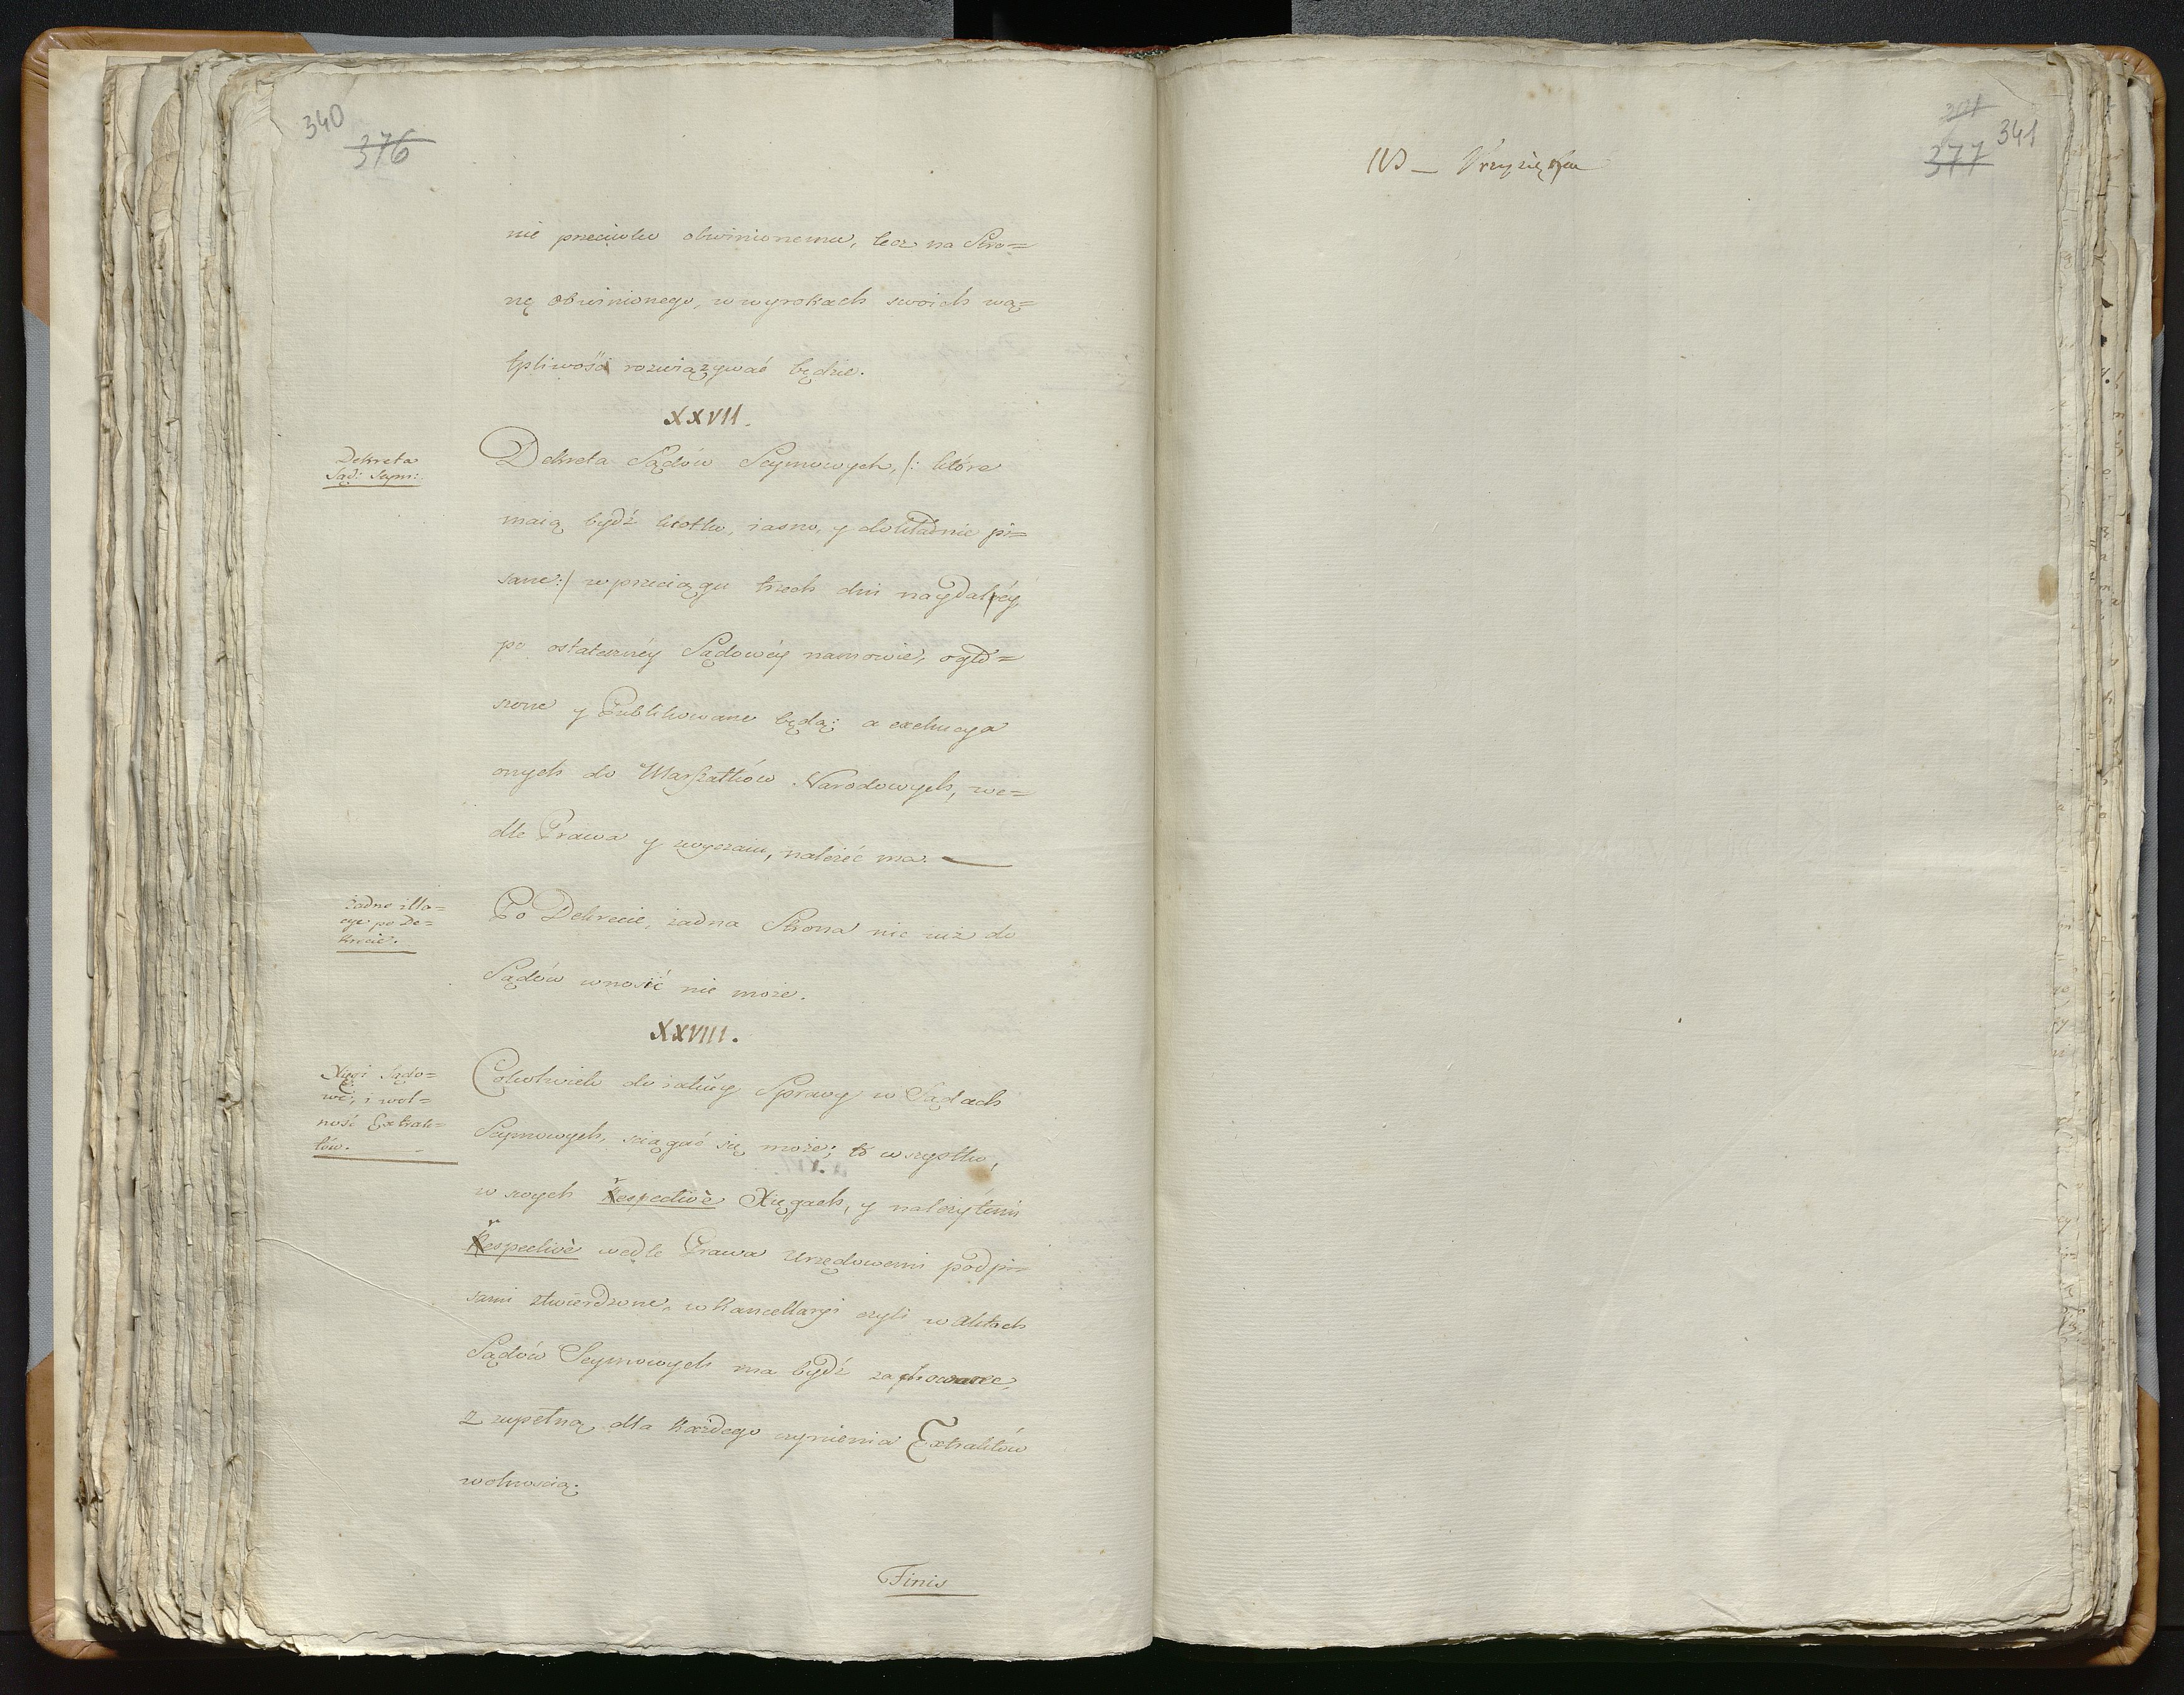 340
376
nie przeciwko obwinionemu, lecz na Stro=
nę obwinionego, w wyrokach swoich wą=
tpliwości rozwiązywać będzie.
XXVII.
Dekreta
Sąd: Seym:
Dekreta Sądów Seymowych, /: które
maią bydź krotko, iasno, y dokładnie pi=
sane :/ w przeciągu trzech dni naydaléy
po ostateczney Sądowéy namowie, ogło=
szone y Publikowane będą: a exekucya
onych do Marszałków Narodowych, we=
dle Prawa y zwyczaiu, należéć ma.
żadne illa=
cye po De=
krecie.
Po Dekrecie, żadna Strona nic iuż do
Sądów wnosić nie może.
XXVIII.
Xięgi Sądo=
we, i wol=
ność Extrak=
tów.
Cokolwiek do iakiéy Sprawy w Sądach
Seymowych, sciągać się może; to wszystko,
w swych Respectivè Xięgach, y należytémi
Respectivè wedle Prawa Urzędowemi podpi=
sami ztwierdzone, w Kancellaryi czyli w Aktach
Sądów Seymowych ma bydź zachowane,
z zupełną dla każdego czynienia Extraktów
wolnoscią.
Finis
341
377
NB _ Przysięga